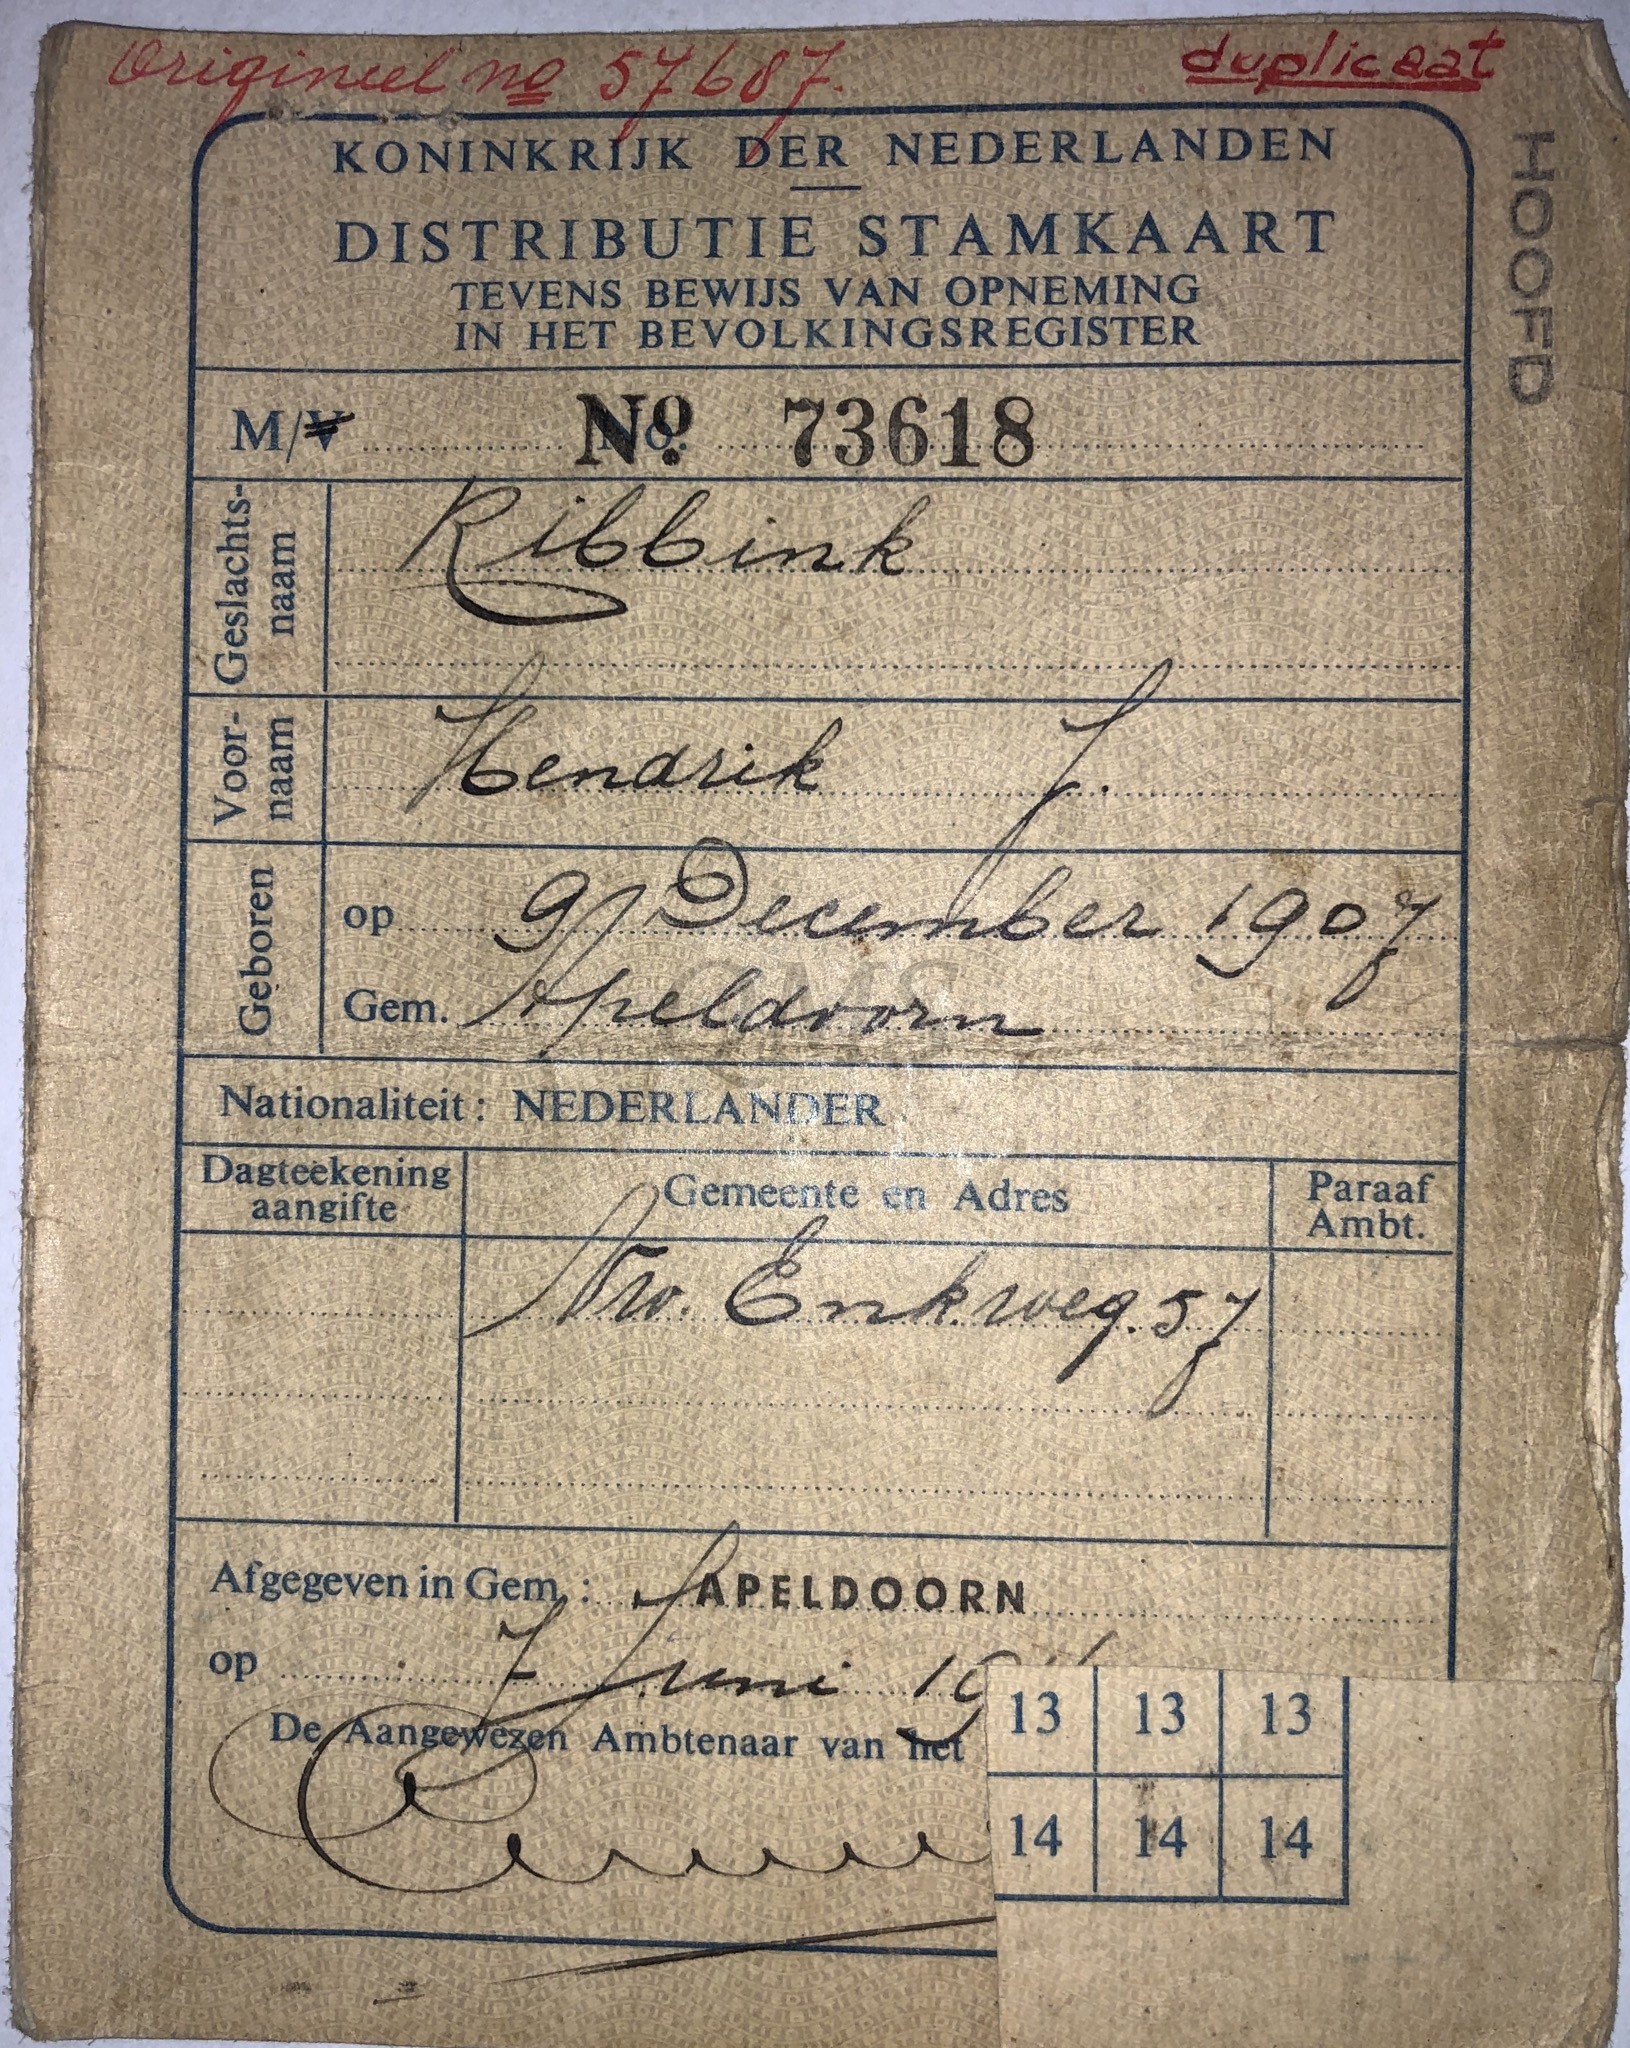 Origineel no 57687.
duplicaat
HOOFD
KONINKRIJK DER NEDERLANDEN
DISTRIBUTIE STAMKAART
TEVENS BEWIJS VAN OPNEMING
IN HET BEVOLKINGSREGISTER
M/V No. 73618
Geslachts-
naam
Ribbink
Voor-
naam
Hendrik J.
Geboren
op 9 December 1907
Gem. Apeldoorn
Nationaliteit: NEDERLANDER
Dagteekening
aangifte
Gemeente en Adres
Paraaf
Ambt.
Nw. Enkweg. 57
Afgegeven in Gem.: APELDOORN
op 7 Juni
De Aangewezen Ambtenaar van het
13 13 13
14 14 14